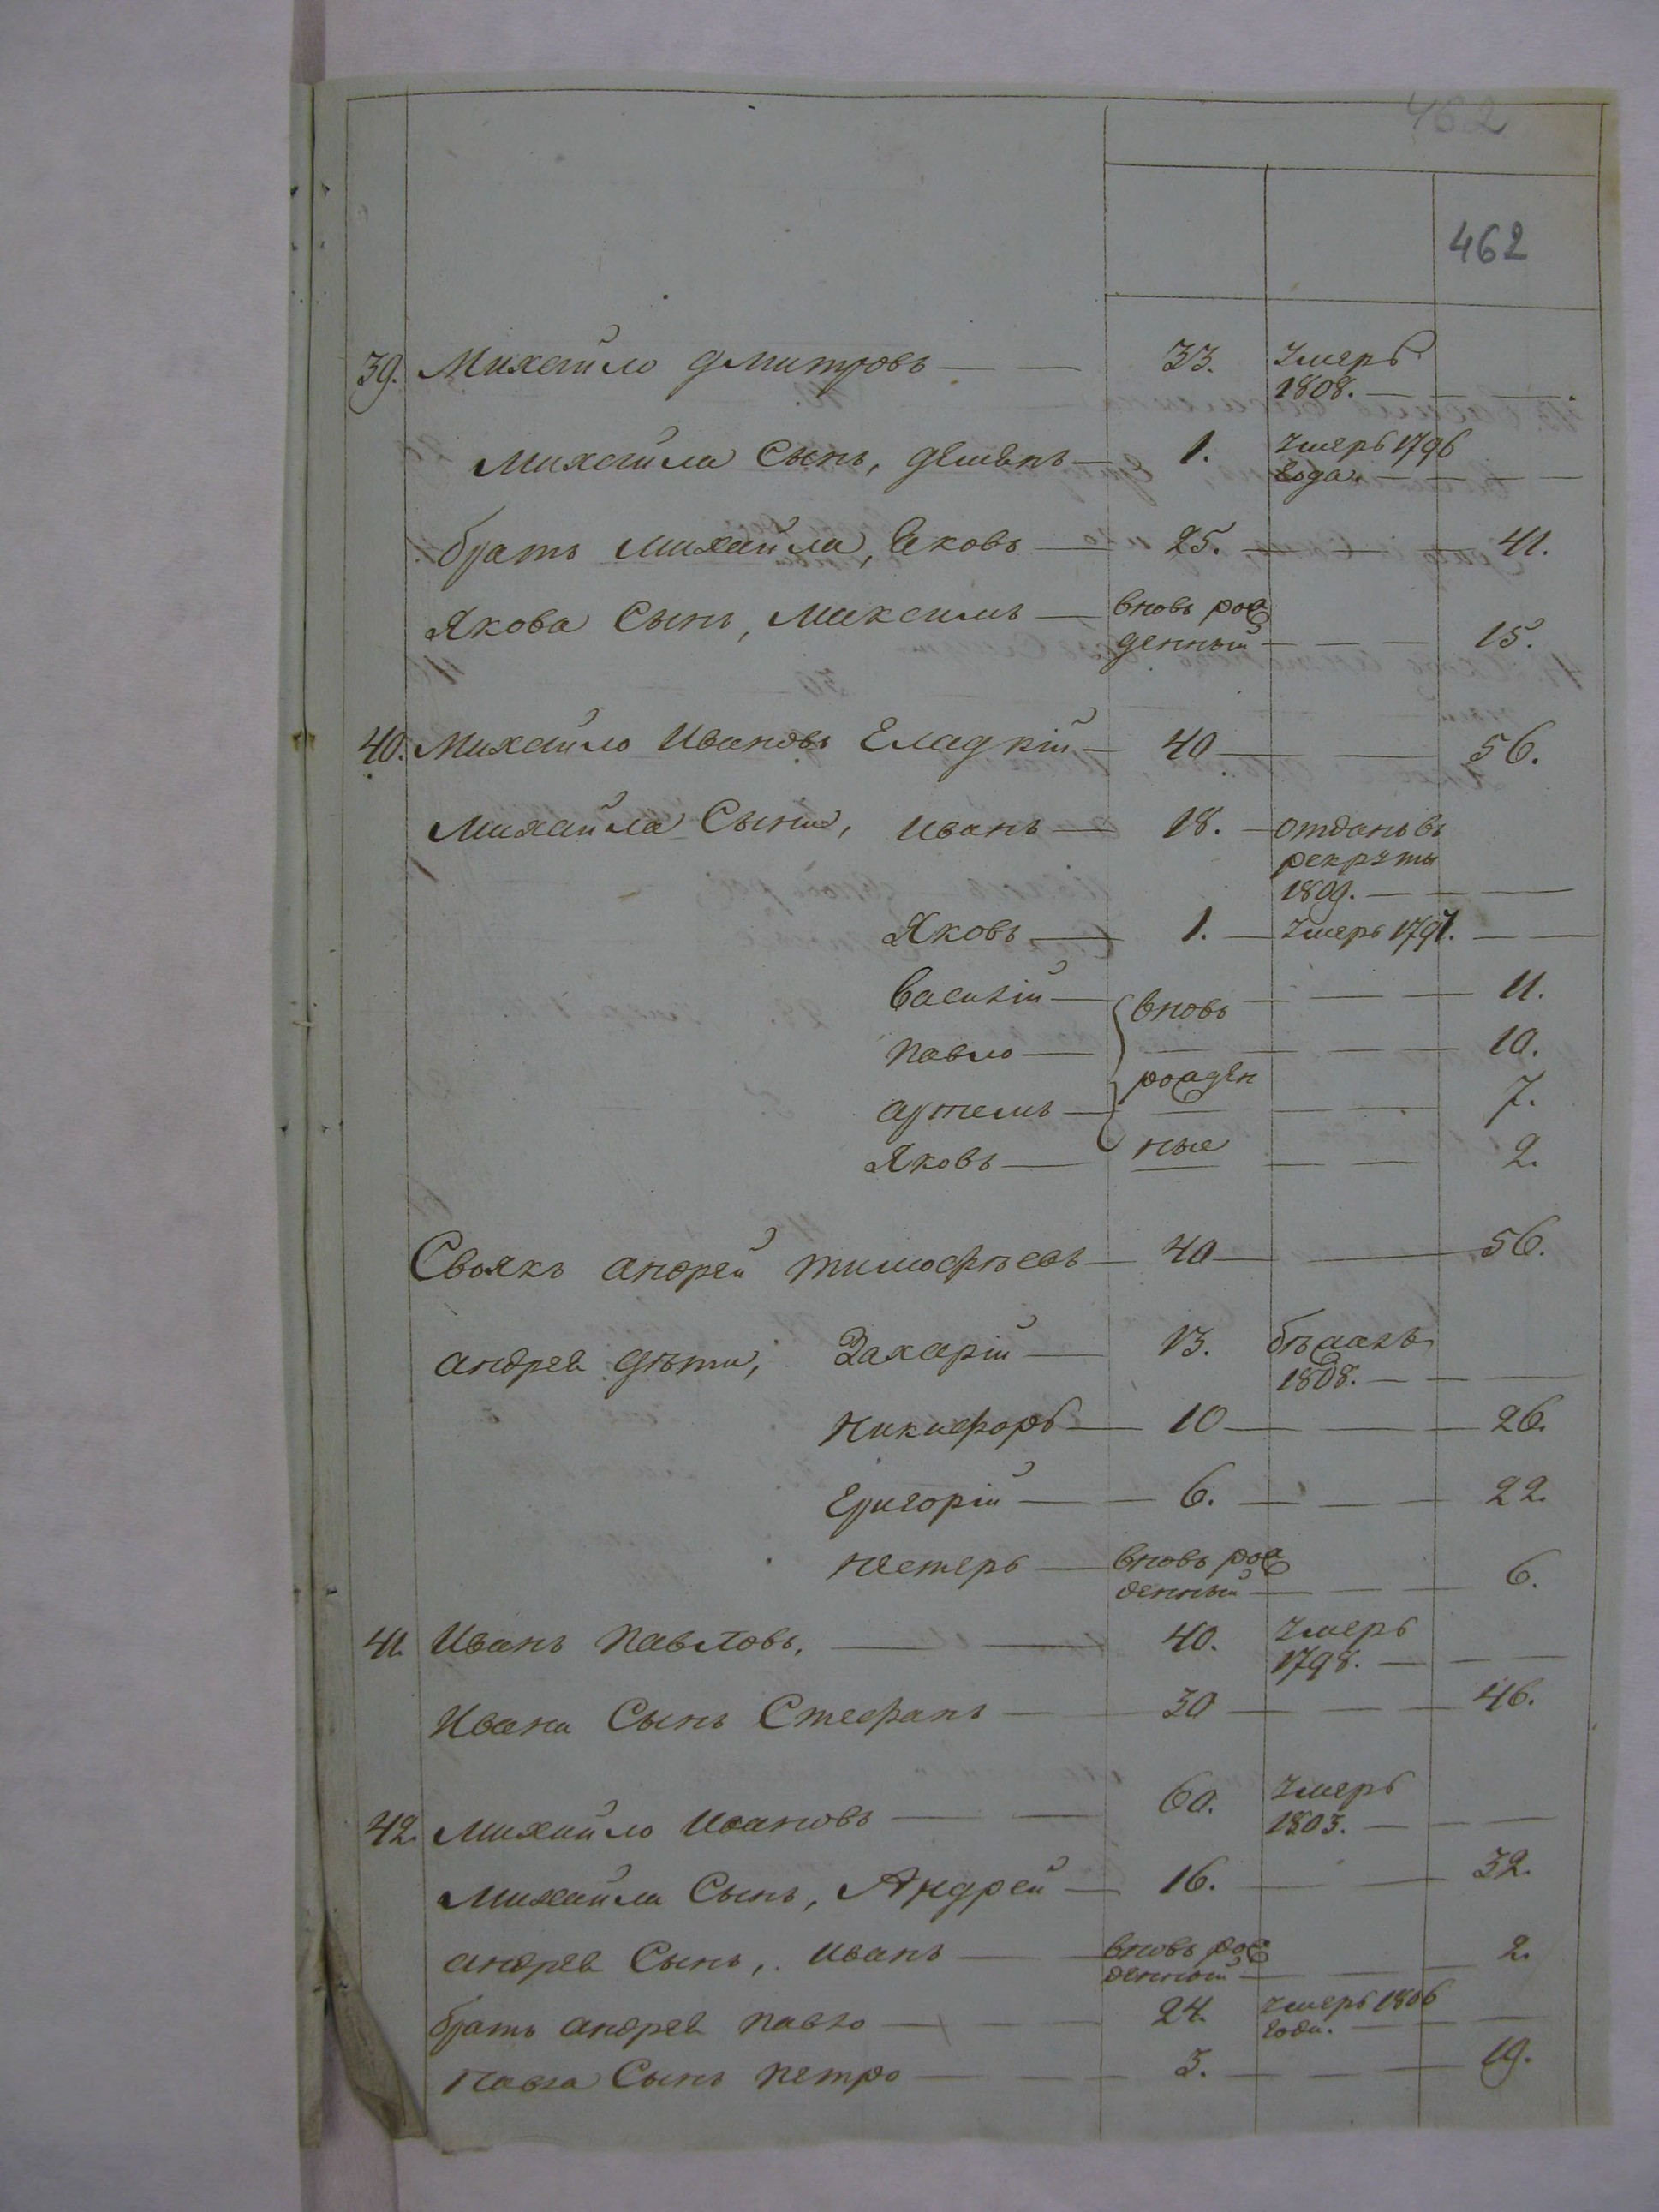 462
462
39. Михайло Дмитровъ — — 33. Умеръ
1808. — —
Михайла Сынъ, Демьянъ — 1. Умеръ 1796
года. — — —
братъ Михайла, Яковъ — 25. — — 41.
Якова Сынъ, Максимъ — вновь рож
денный — — — 15.
40. Михайло Ивановъ Гладкій — 40 — — 56.
Михайла Сыны, Иванъ — 18. — отданъ въ
рекруты
1809. — — —
Яковъ — 1. — Умеръ 1797. — —
Василій — вновь — — — 11.
Павло — — — — — 10.
рожден
Артемъ — — — — 7.
Яковъ — ные — — 2.
Своякъ Андрей Тимофѣевъ — 40 — — 56.
Андрея дѣти, Захарій — 13. бѣжалъ
1808. — — —
Никифоръ — 10 — — — 26.
Григорій — — 6. — — — 22.
Нестеръ — вновь рож
денный — — — 6.
41. Иванъ Павловъ. — — 40. Умеръ
1798. — — —
Ивана Сынъ Стефанъ — 30 — — — 46.
42. Михайло Ивановъ — — 60. Умеръ
1803. — — —
Михайла Сынъ, Андрей — 16. — — — 32.
Андрея Сынъ, Иванъ — вновь рож
денный — — — 2.
братъ Андрея Павло — — — 24. Умеръ 1806
года. — — —
Павла Сынъ Петро — — — 3. — — — 19.